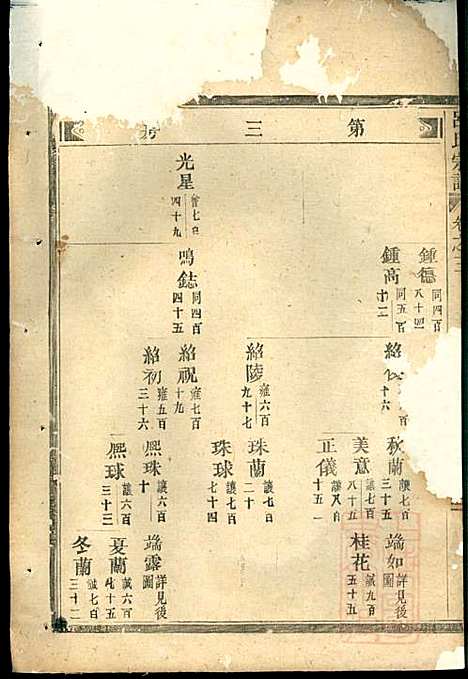 呂氏宗譜 卷之三
第三
鍾德 同四百八十四
鍾高 同五百十二
光星 曾七百四十九
鳴鋕 同四百四十五
紹
十六
紹陵 雍六百九十七
紹祝 雍七百十九
紹初 雍五百三十六
秋蘭 讓七百三十五
美意 讓七百八十五
正儀 讓八百十五
珠蘭 讓七百二十
珠球 讓七百七十四
熙珠 讓六百十
熙球 讓六百三十三
端如 詳見後圖
桂花 誠九百五十五
端露 詳見後圖
夏蘭 誠六百七十五
冬蘭 誠七百三十二